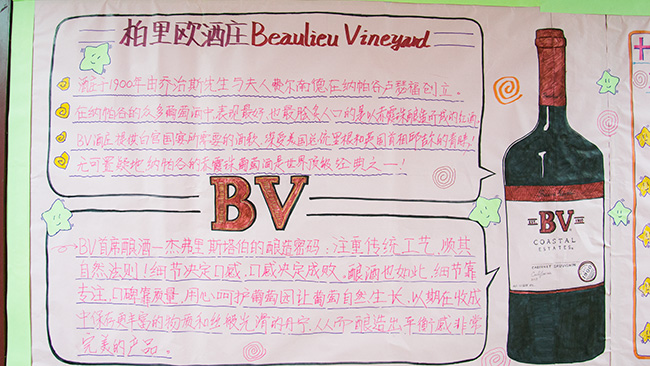 柏里欧酒庄 Beaulieu Vineyard
酒庄于1900年由乔治斯先生与夫人费尔南德在纳帕谷卢瑟福创立。
在纳帕谷的众多葡萄酒中,表现最好,也最脍炙人口的是以赤霞珠酿造而成的红酒。
BV酒庄提供白宫国宴所需要的酒款,深受美国总统里根和英国首相邱吉尔的青睐!
无可置疑地纳帕谷的赤霞珠葡萄酒是世界顶级经典之一!
BV
BV首席酿酒—杰弗里斯塔伯的酿造密码:注重传统工艺,顺其
自然法则!细节决定口感,口感决定成败,酿酒也如此,细节靠
专注,口碑靠质量,用心呵护葡萄园让葡萄自然生长,以期在收成
中保存更丰富的物质和丝般光滑的丹宁,从而酿造出平衡感非常
完美的产品。
BV
COASTAL
ESTATES
CABERNET SAUVIGNON
California